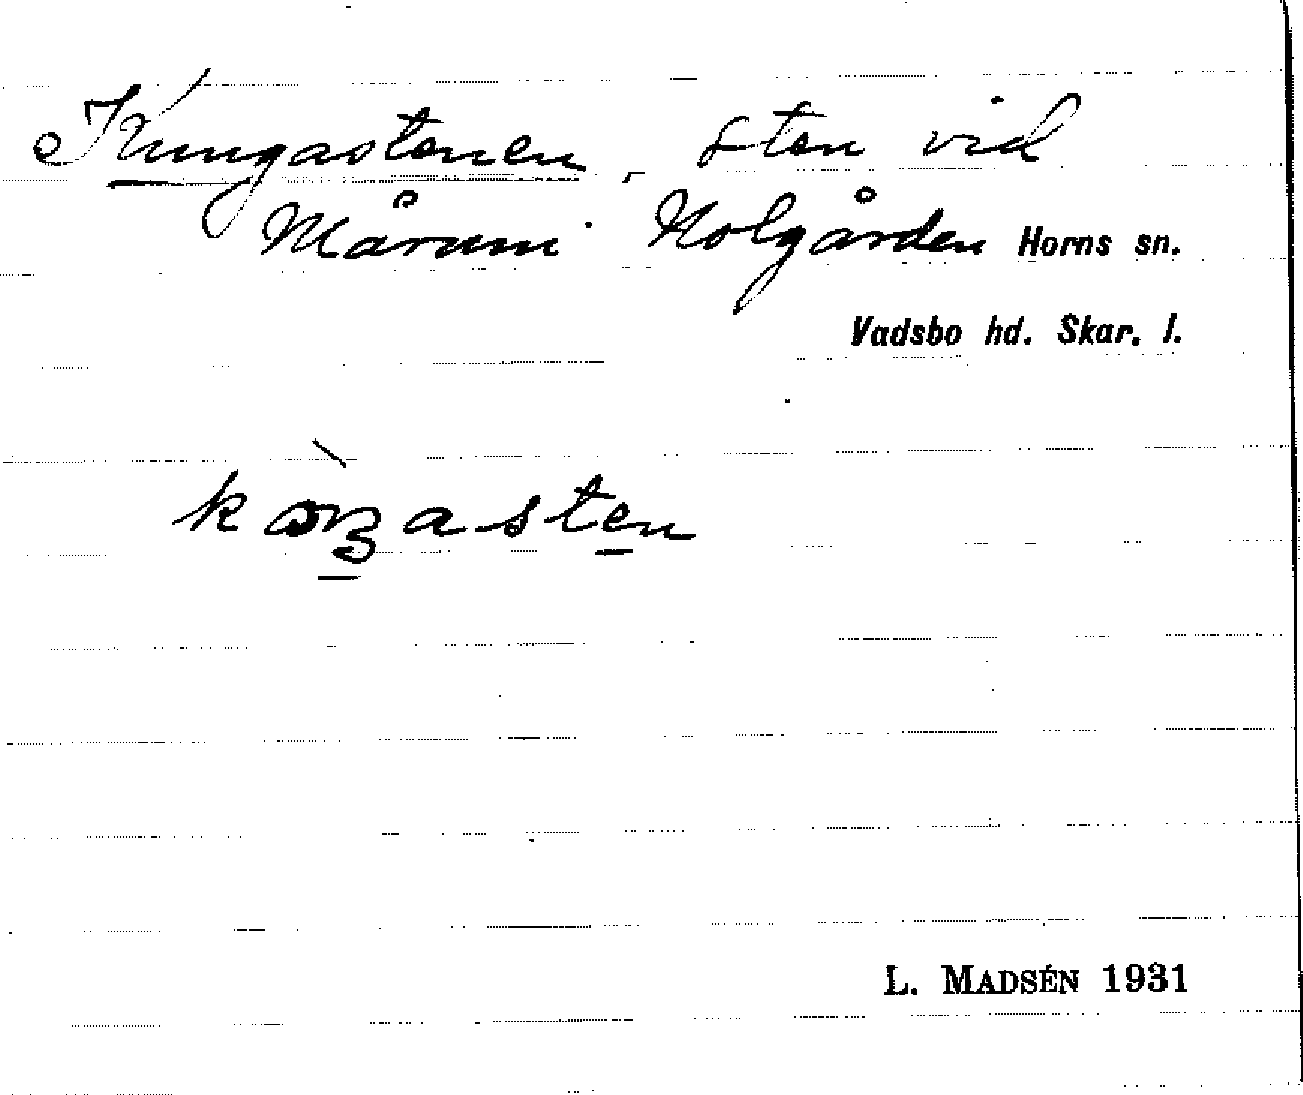 Kungastenen, sten vid
Mårum Holgården Horns sn.
Vadsbo hd. Skar. l.
L. MADSÉN 1931